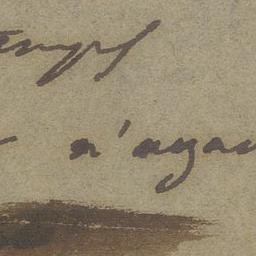 temps
n'ayan